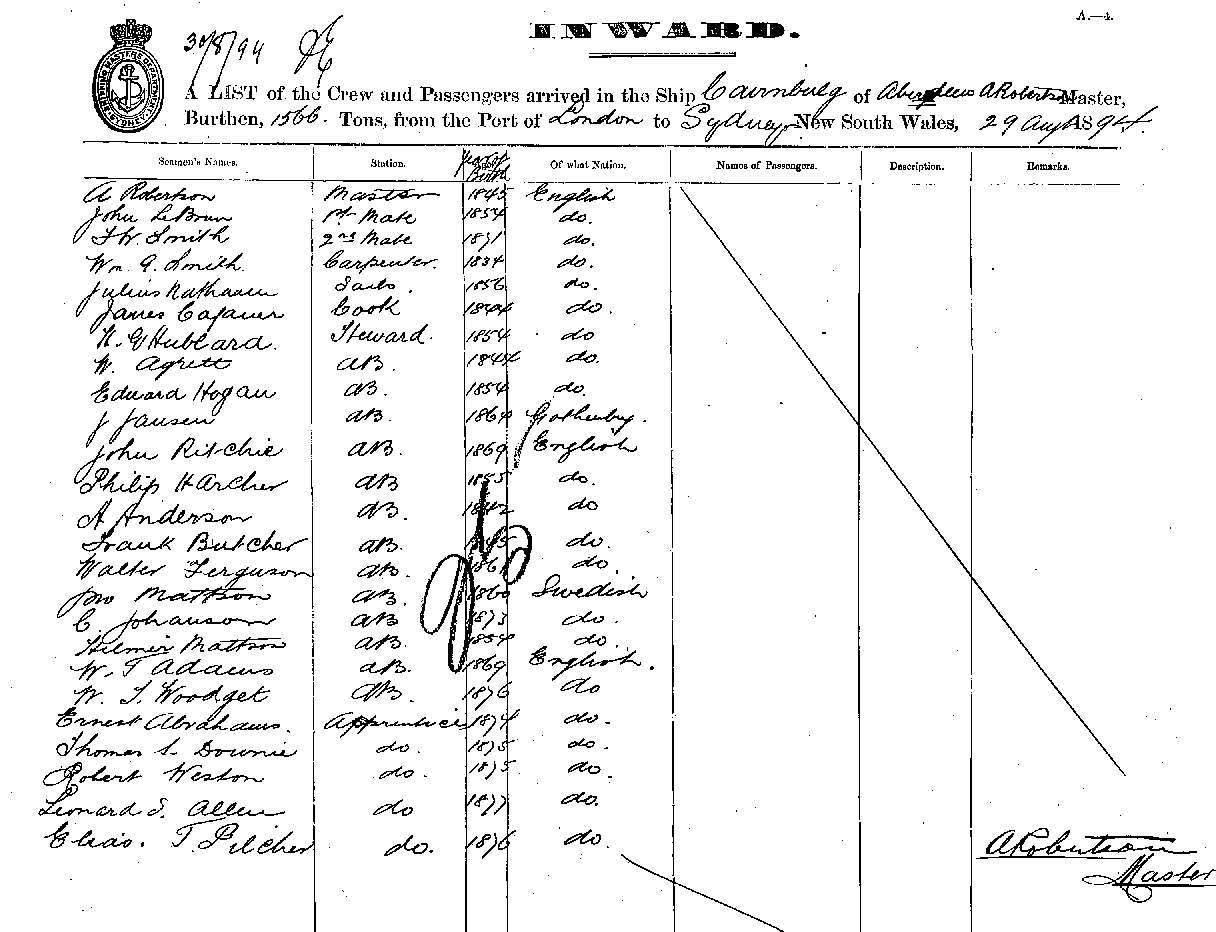 A.—4.
INWARD.
30/8/94
A LIST of the Crew and Passengers arrived in the Ship Cairnbulg of Aberdeen A Robertson Master,
Burthen, 1566. Tons, from the Port of London to Sydney, New South Wales, 29 Augt 1894.
Seamen's Names. Station. Year of Birth Of what Nation. Names of Passengers. Description. Remarks.
A Robertson Master 1845 English
John LeBrun 1st Mate 1854 do.
F W. Smith 2nd Mate 1871 do.
Wm G. Smith. Carpenter. 1834 do.
Julius Sails. 1856 do.
James Cook do.
Hubbard. Steward. 1854 do
W. Agrett AB. 1844 do.
Edward Hogan AB. 1854 do.
J Jansen AB. 1864 Gothenburg.
John Ritchie AB. 1869 English
Philip H Archer AB do.
A Anderson AB. 1842 do
Frank Butcher AB. 1845 do.
Walter Ferguson AB. do.
Jno Mattson AB. 1860 Swedish
C. Johanson AB 1873 do.
Hilmir Mattson AB 1854 do
W. T Adams AB. 1869 English.
W. T. Woodget AB. 1876 do
Ernest Abrahams. Apprentice 1874 do.
Thomas S. Downie do. 1875 do.
Robert Weston do. 1875 do.
Leonard S. Allen do 1877 do.
Elias. T Pilcher do. 1876 do.
25
A Robertson
Master